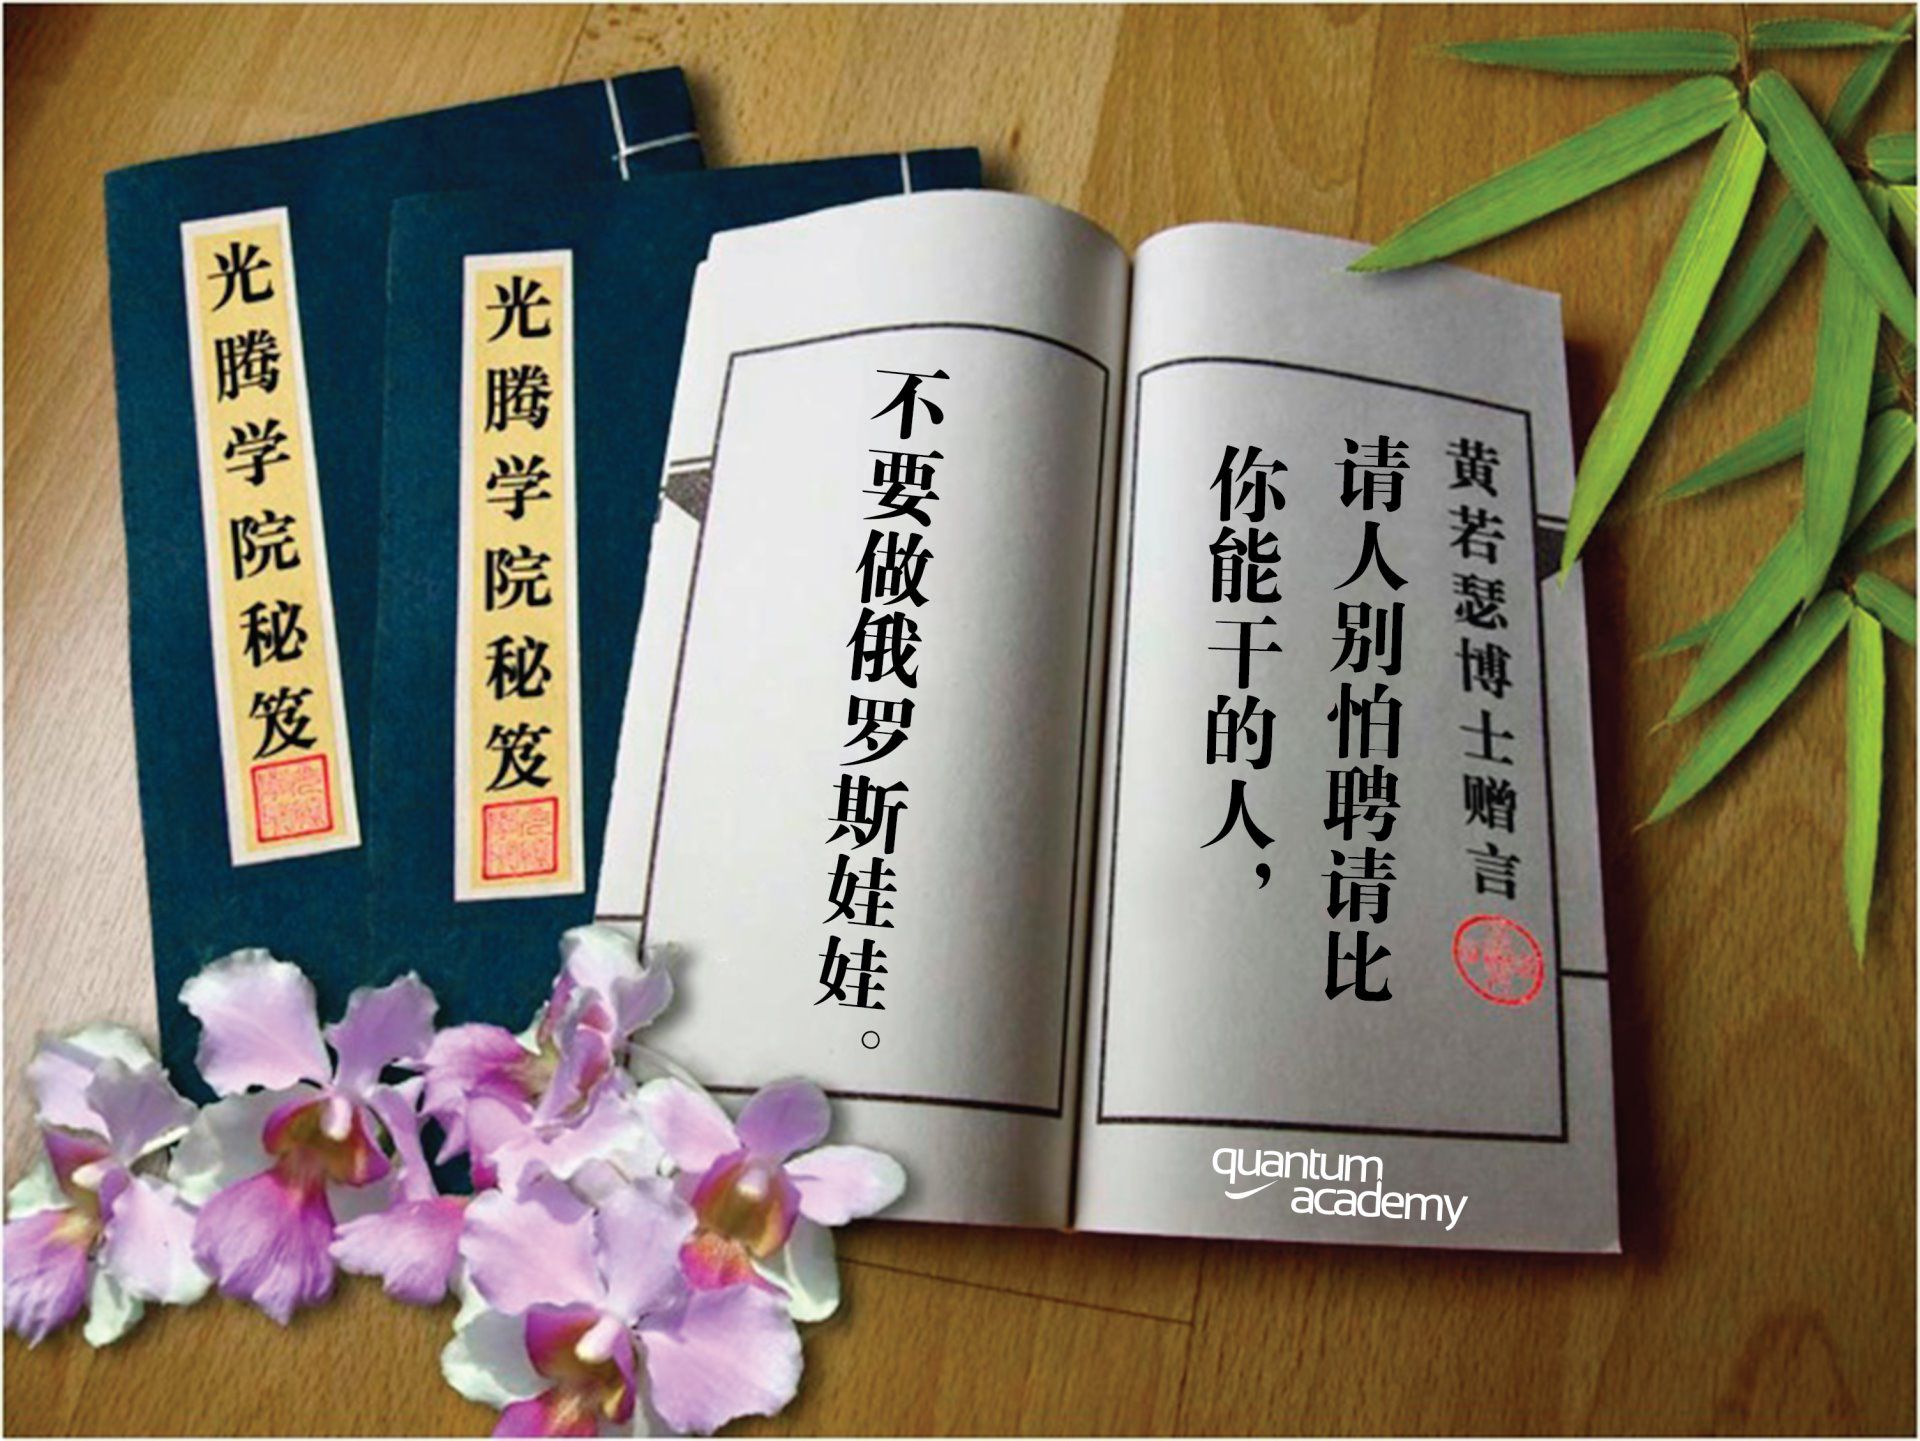 光腾学院秘笈
光腾学院秘笈
黄若瑟博士赠言
请人别怕聘请比
你能干的人，
不要做俄罗斯娃娃。
quantum
academy